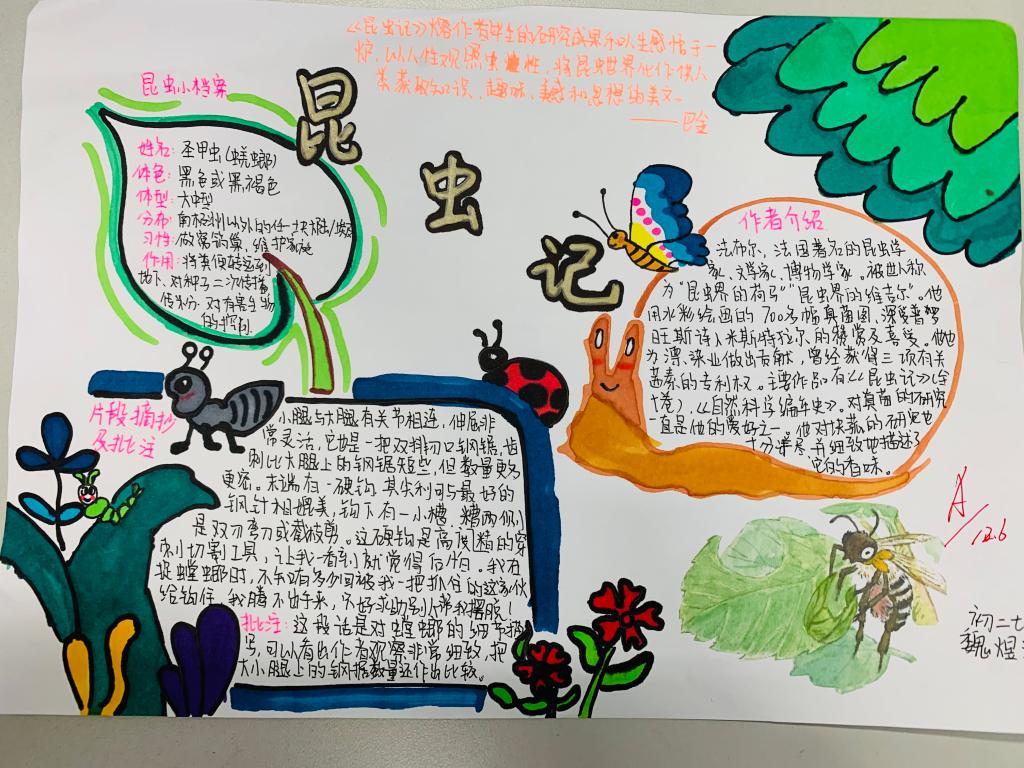 《昆虫记》熔作者毕生的研究成果和人生感悟于一
炉，以人性观照虫性，将昆虫世界化作供人
类获取知识、趣味、美感和思想的美文。
——巴金
昆
虫
记
昆虫小档案
姓名：圣甲虫（蜣螂）
体色：黑色或黑褐色
体型：大中型
分布：南极洲以外的任一块大陆
习性：做粪
作用：将粪便转运到
地下，对种子二次传播，
传粉，对有害生物
的控制
作者介绍
法布尔，法国著名的昆虫学
家、文学家、博物学家。被世人称
为“昆虫界的荷马”“昆虫界的维吉尔”。他
用水彩绘画的700多幅真菌图，深受普罗
旺斯诗人米斯特拉尔的赞赏及喜爱。他也
为漂染业做出贡献，曾经获得三项有关
茜素的专利权。主要作品有《昆虫记》（全
十卷），《自然科学编年史》。对真菌的研究
且是他的爱好之一。他对块菰的研究也
十分详尽，并细致地描述了
它的香味。
片段摘抄
及批注
小腿与大腿有关节相连，伸屈非
常灵活，它也是一把双排刃口钢锯，齿
刺比大腿上的钢锯短些，但数量更多
更密。末端有一硬钩，其尖利可与最好的
钢针相媲美，钩下有一小槽，槽两侧
是双刃弯刀或截枝剪。这硬钩是高度精的穿
刺切割工具，让我一看到就觉得后怕。我在
捉螳螂时，不知有多少回被我一把抓住的这家伙
给钩住，我腾不出手来，只好求助别人帮我摆脱！
批注：这段话是对螳螂的细节描
写，可以看出作者观察非常细致，把
大小腿上的钢锯数量还作出比较。
A
12.6
初二七
魏煜